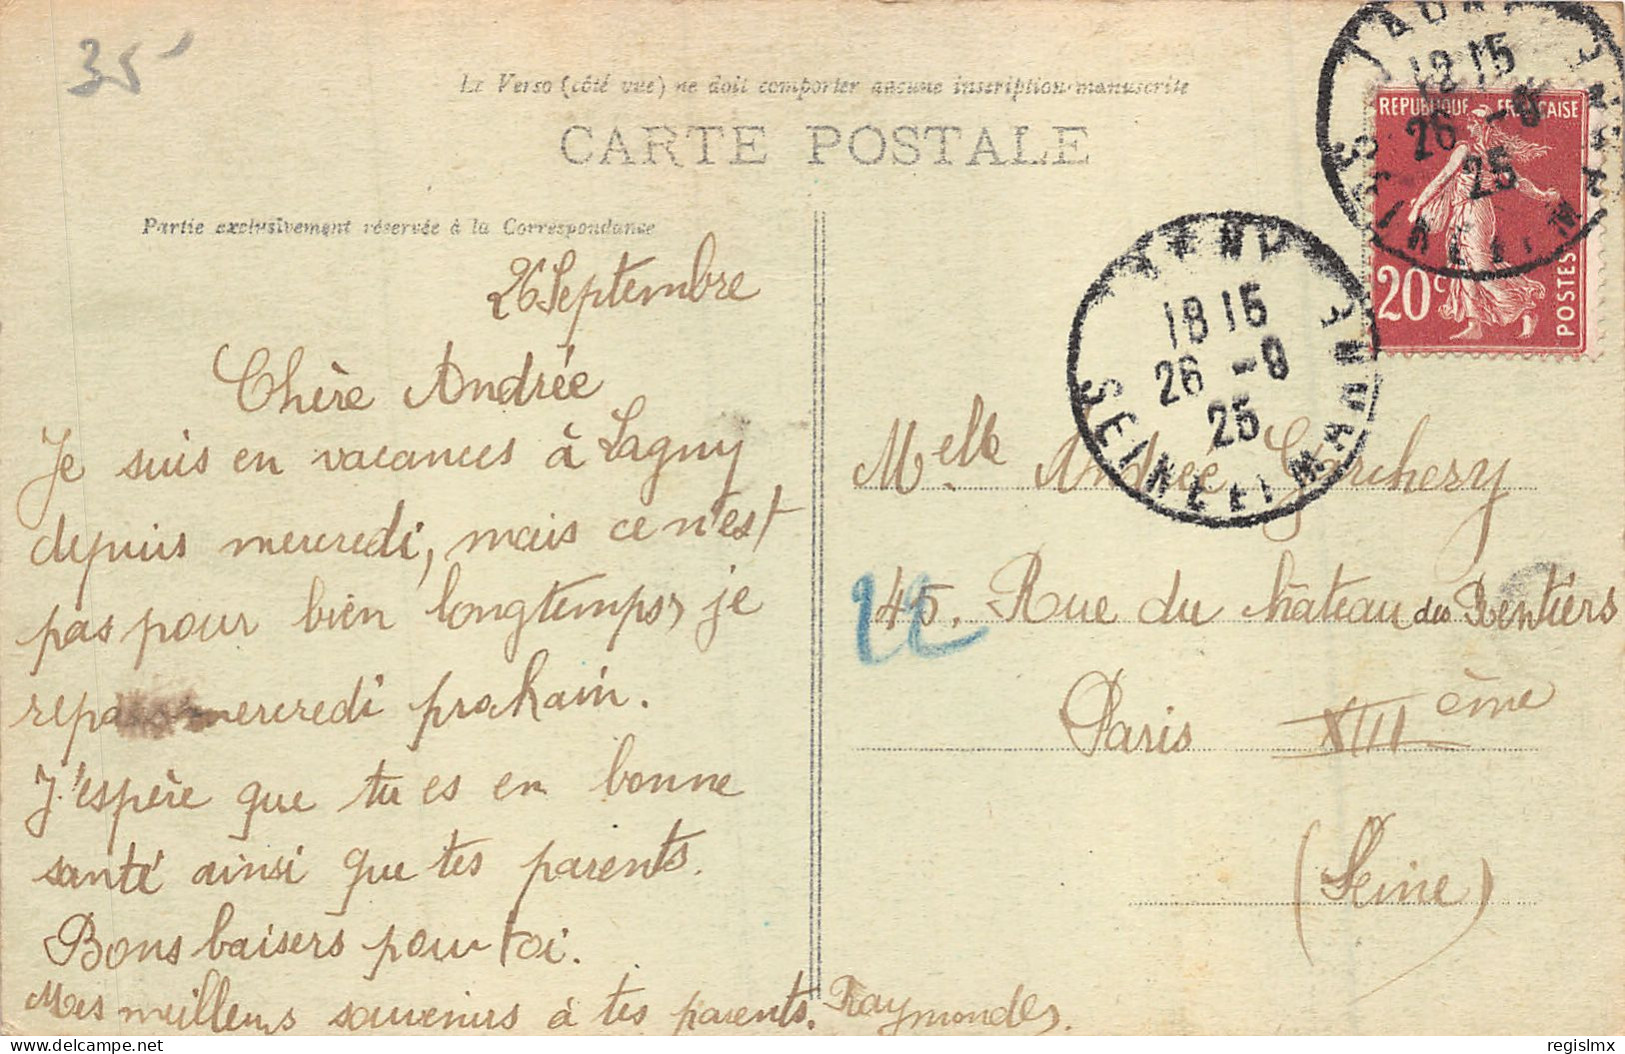 35
Le Verso (côté vue) ne doit comporter aucune inscription manuscrite
CARTE POSTALE
Partie exclusivement réservée à la Correspondance
26 Septembre
Chère Andrée
Je suis en vacances à Lagny
depuis mercredi, mais ce n'est
pas pour bien longtemps, je
repars mercredi prochain.
J'espère que tu es en bonne
santé ainsi que tes parents.
Bons baisers pour toi.
Mes meilleurs souvenirs à tes parents. Raymonde.
REPUBLIQUE FRANÇAISE
20c
POSTES
18 15
26 -9
25
SEINE ET MARNE
18 15
26 -9
25
SEINE ET MARNE
Melle Andrée Garchery
145. Rue du château des Rentiers
Paris XIIIème
(Seine)
regislmx
delcampe.net